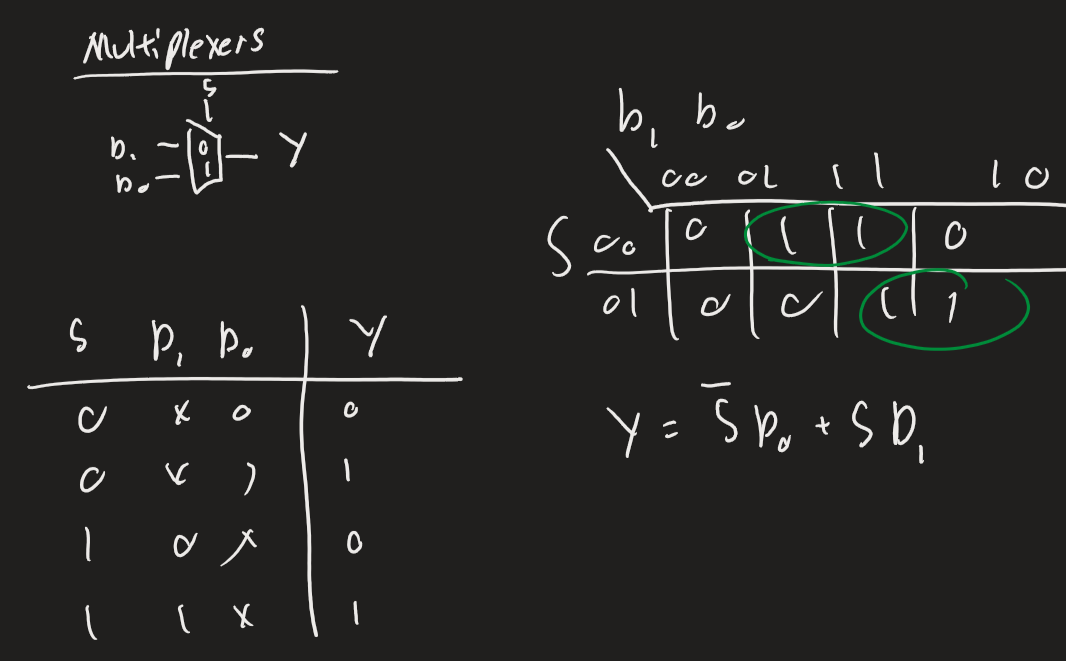 Multiplexers
S
D₁ 0 Y
D₀ 1
S D₁ D₀ Y
0 x 0 0
0 x 1 1
1 0 x 0
1 1 x 1
D₁ D₀
00 01 11 10
S 00 0 1 1 0
01 0 0 1 1
Y = S̅ D₀ + S D₁